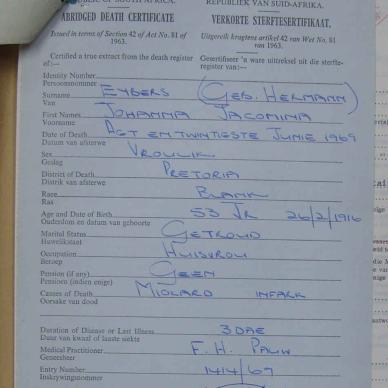 REPUBLIC OF SOUTH AFRICA. REPUBLIEK VAN SUID-AFRIKA.
ABRIDGED DEATH CERTIFICATE VERKORTE STERFTESERTIFIKAAT.
Issued in terms of Section 42 of Act No. 81 of 1963. Uitgereik kragtens artikel 42 van Wet No. 81 van 1963.
Certified a true extract from the death register of:— Gesertifiseer 'n ware uittreksel uit die sterfte-register van:—
Identity Number
Persoonsnommer
Surname EYBERS (GEB. HERMANN)
Van
First Names JOHANNA JACOMINA
Voorname
Date of Death AGT EN TWINTIGSTE JUNIE 1969
Datum van afsterwe
Sex VROULIK
Geslag
District of Death PRETORIA
Distrik van afsterwe
Race BLANK
Ras
Age and Date of Birth 53 JR 26/2/1916
Ouderdom en datum van geboorte
Marital Status GETROUD
Huwelikstaat
Occupation HUISVROU
Beroep
Pension (if any) GEEN
Pensioen (indien enige)
Causes of Death MIOKARD INFARK
Oorsake van dood
Duration of Disease or Last Illness 3 DAE
Duur van kwaal of laaste siekte
Medical Practitioner F. H. PAUW
Geneesheer
Entry Number 1414/69
Inskrywingsnommer